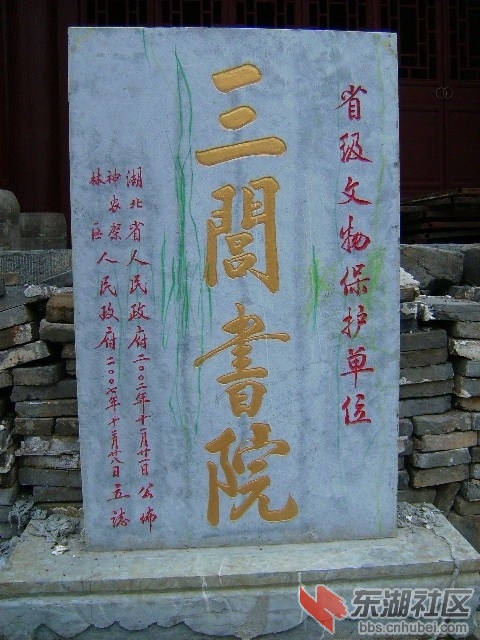 省级文物保护单位
三闾書院
湖北省人民政府二〇〇二年十一月廿一日公佈
神农架林区人民政府二〇〇七年十二月廿八日立誌
东湖社区
bbs.cnhubei.com